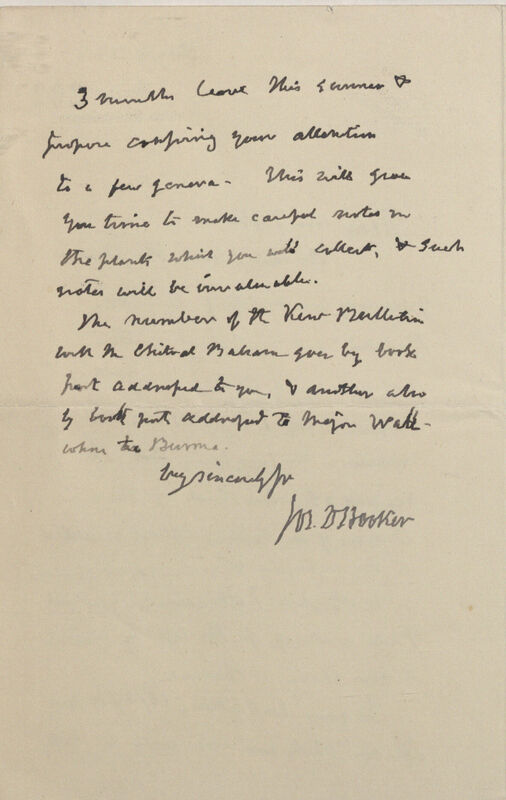 3 months leave this summer &
propose confining your attention
to a few genera - This will give
you time to make careful notes on
the plants which you will collect, & such
notes will be invaluable.
The number of the Kew Bulletin
with the Chitral Balsam goes by book
post addressed to you, & another also
by book post addressed to Major Wall-
Burma.
very sincerely yr
Jos. D Hooker